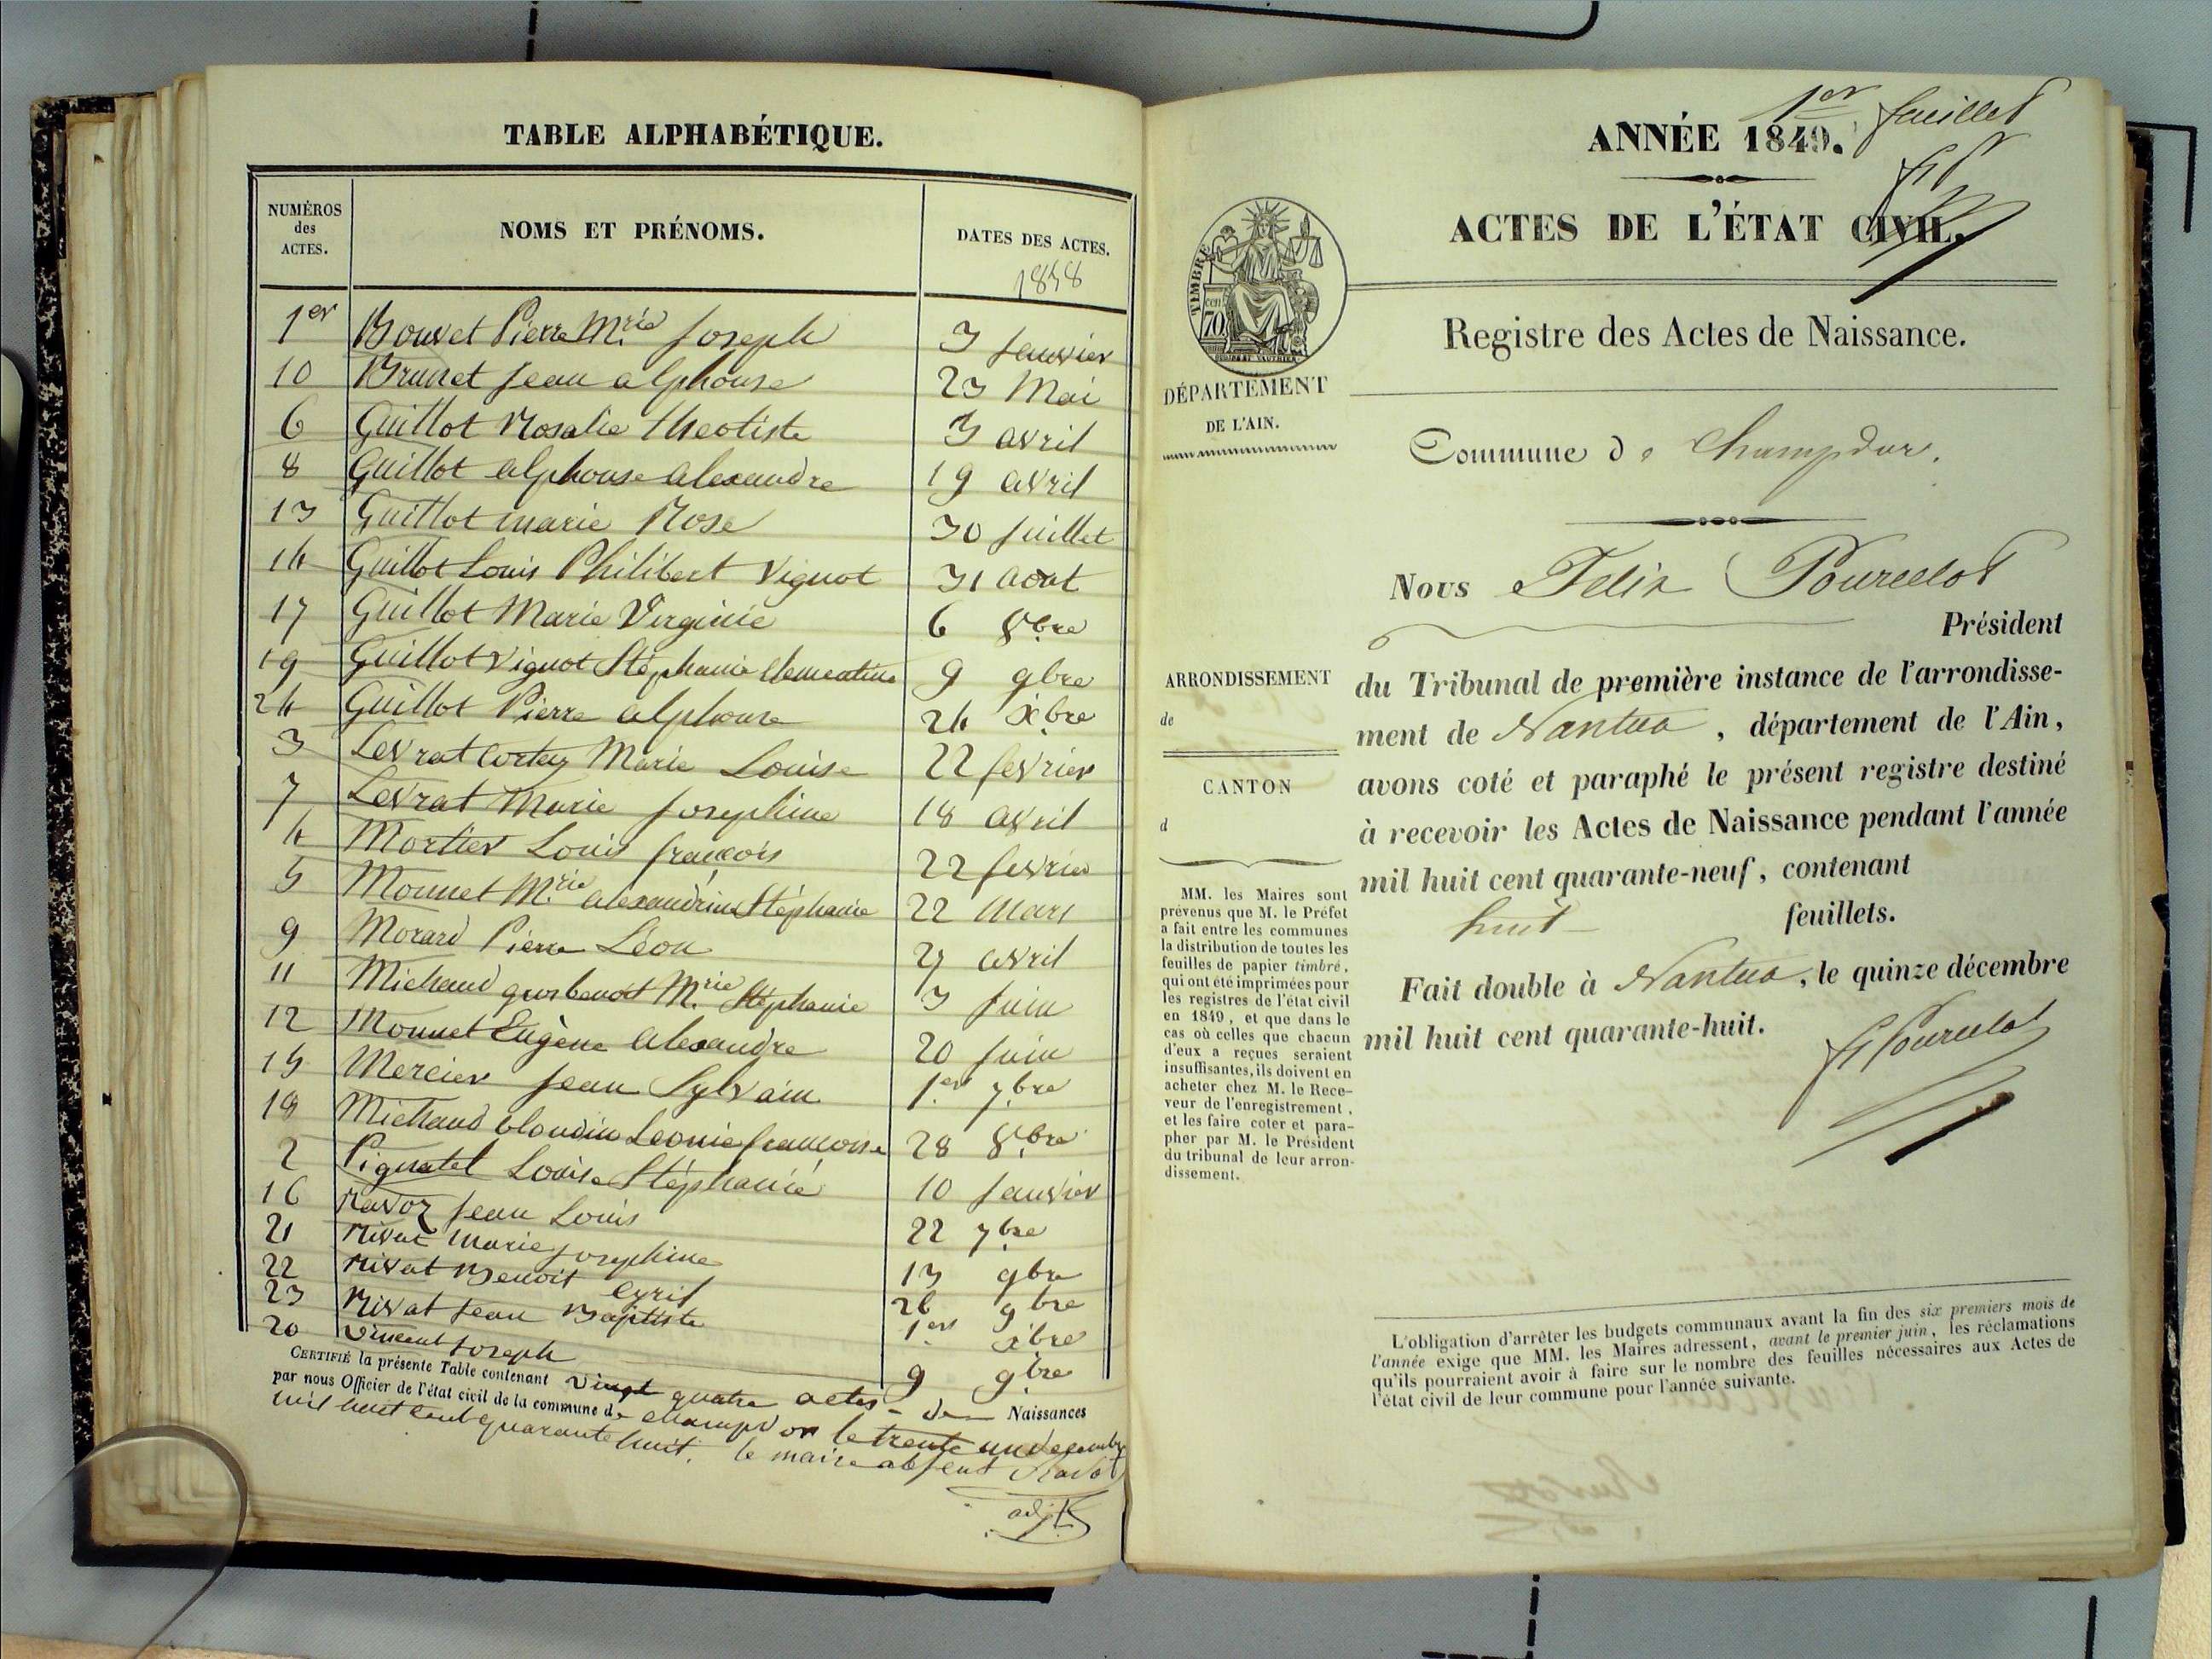 TABLE ALPHABÉTIQUE.
NUMÉROS des ACTES. NOMS ET PRÉNOMS. DATES DES ACTES.
1848
1er Bouvet Pierre Mrie Joseph 3 Janvier
10 Brunet Jean alphonse 23 Mai
6 Guillot Rosalie théotiste 3 avril
8 Guillot alphonse alexandre 19 avril
13 Guillot marie Rose 30 Juillet
14 Guillot Louis Philibert Vignot 31 aout
17 Guillot Marie Virginie 6 8bre
19 Guillot Vignot Stéphanie Clementine 9 9bre
24 Guillot Pierre alphonse 24 Xbre
3 Levrat Cortey Marie Louise 22 fevrier
7 Levrat Marie Josephine 18 avril
4 Mortier Louis françois 22 fevrier
5 Monnet Mrie alexandrine Stéphanie 22 Mars
9 Morard Pierre Léon 27 avril
11 Michaud grosbenoit Mrie Stéphanie 3 Juin
12 Monnet Eugène alexandre 20 Juin
15 Mercier Jean Sylvain 1er 7bre
18 Michaud blondin Leonie françoise 28 8bre
2 Pignatel Louise Stéphanie 10 Janvier
16 Ravoz Jean Louis 22 7bre
21 Rivat Marie Josephine 13 9bre
22 Rivat Benoit Cyril 26 9bre
23 Rivat Jean Baptiste 1er Xbre
20 Vincent Joseph 9 9bre
CERTIFIÉ la présente Table contenant vingt quatre actes - de Naissances
par nous Officier de l'état civil de la commune de champdor le trente un decembre
mil huit cent quarante huit. le maire absent Ravot
adjt
1er feuillet
ANNÉE 1849.
ACTES DE L'ÉTAT CIVIL.
TIMBRE
cen 70
Registre des Actes de Naissance.
DÉPARTEMENT
DE L'AIN.
Commune de Champdor.
Nous Felix Pourcelot
Président
ARRONDISSEMENT
de
CANTON
d
du Tribunal de première instance de l'arrondisse-
ment de Nantua, département de l'Ain,
avons coté et paraphé le présent registre destiné
à recevoir les Actes de Naissance pendant l'année
mil huit cent quarante-neuf, contenant
huit feuillets.
Fait double à Nantua, le quinze décembre
mil huit cent quarante-huit.
F Pourcelot
MM. les Maires sont
prévenus que M. le Préfet
a fait entre les communes
la distribution de toutes les
feuilles de papier timbré,
qui ont été imprimées pour
les registres de l'état civil
en 1849, et que dans le
cas où celles que chacun
d'eux a reçues seraient
insuffisantes, ils doivent en
acheter chez M. le Rece-
veur de l'enregistrement,
et les faire coter et para-
pher par M. le Président
du tribunal de leur arron-
dissement.
L'obligation d'arrêter les budgets communaux avant la fin des six premiers mois de
l'année exige que MM. les Maires adressent, avant le premier juin, les réclamations
qu'ils pourraient avoir à faire sur le nombre des feuilles nécessaires aux Actes de
l'état civil de leur commune pour l'année suivante.